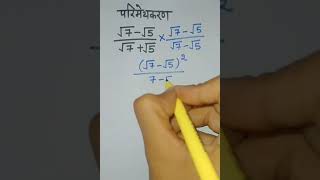 परिमेयकरण
(√7-√5)/(√7+√5) × (√7-√5)/(√7-√5)
(√7-√5)²/(7-5)